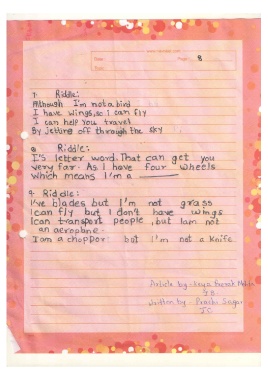 Page: 8
7. Riddle:
Although I'm not a bird
I have wings, so i can fly
I can help you travel
By jetting off through the sky
8. Riddle:
I'S letter word. That can get you
very far. As I have four wheels
which means I'm a
9. Riddle:
I've blades but I'm not grass
I can fly but I don't have wings
I can transport people, but I am not
an aeroplane.
I am a chopper but I'm not a knife.
Article by -
Written by -